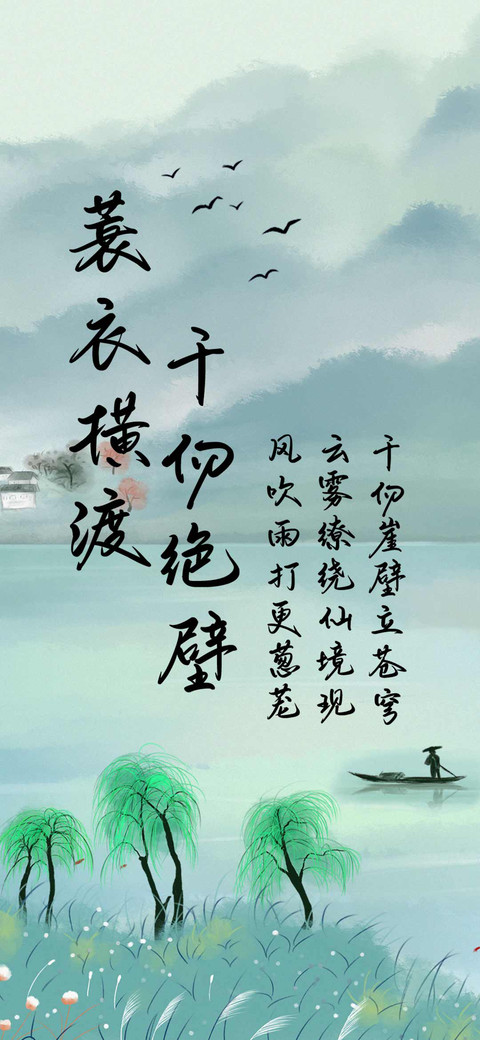 千仞绝壁
蓑衣横渡
千仞崖壁立苍穹
云雾缭绕仙境现
风吹雨打更葱茏